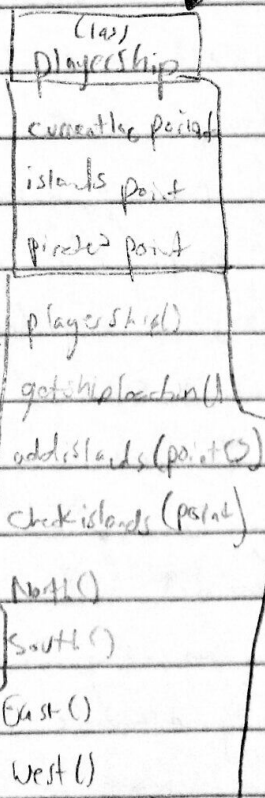 Class
playership
currentloc point
islands point
pirates point
playership()
getshiplocation()
addislands(point[])
checkislands(point)
North()
South()
East()
West()